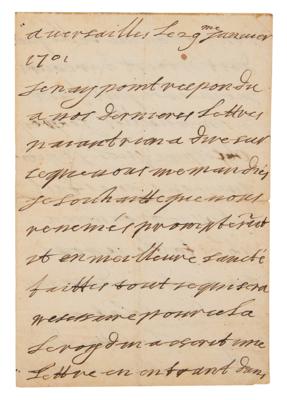 a versailles le 29 me Janvier
1701
Je nay point respondu
a vos dernieres lettres
nayant rien a dire sur
ce que vous me mandiés
je souhaitte que vous
revenies promptement
et en meilleure santé
faittes tout ce qui sera
necessaire pour cela
le roy d'
lettre en entrant dans